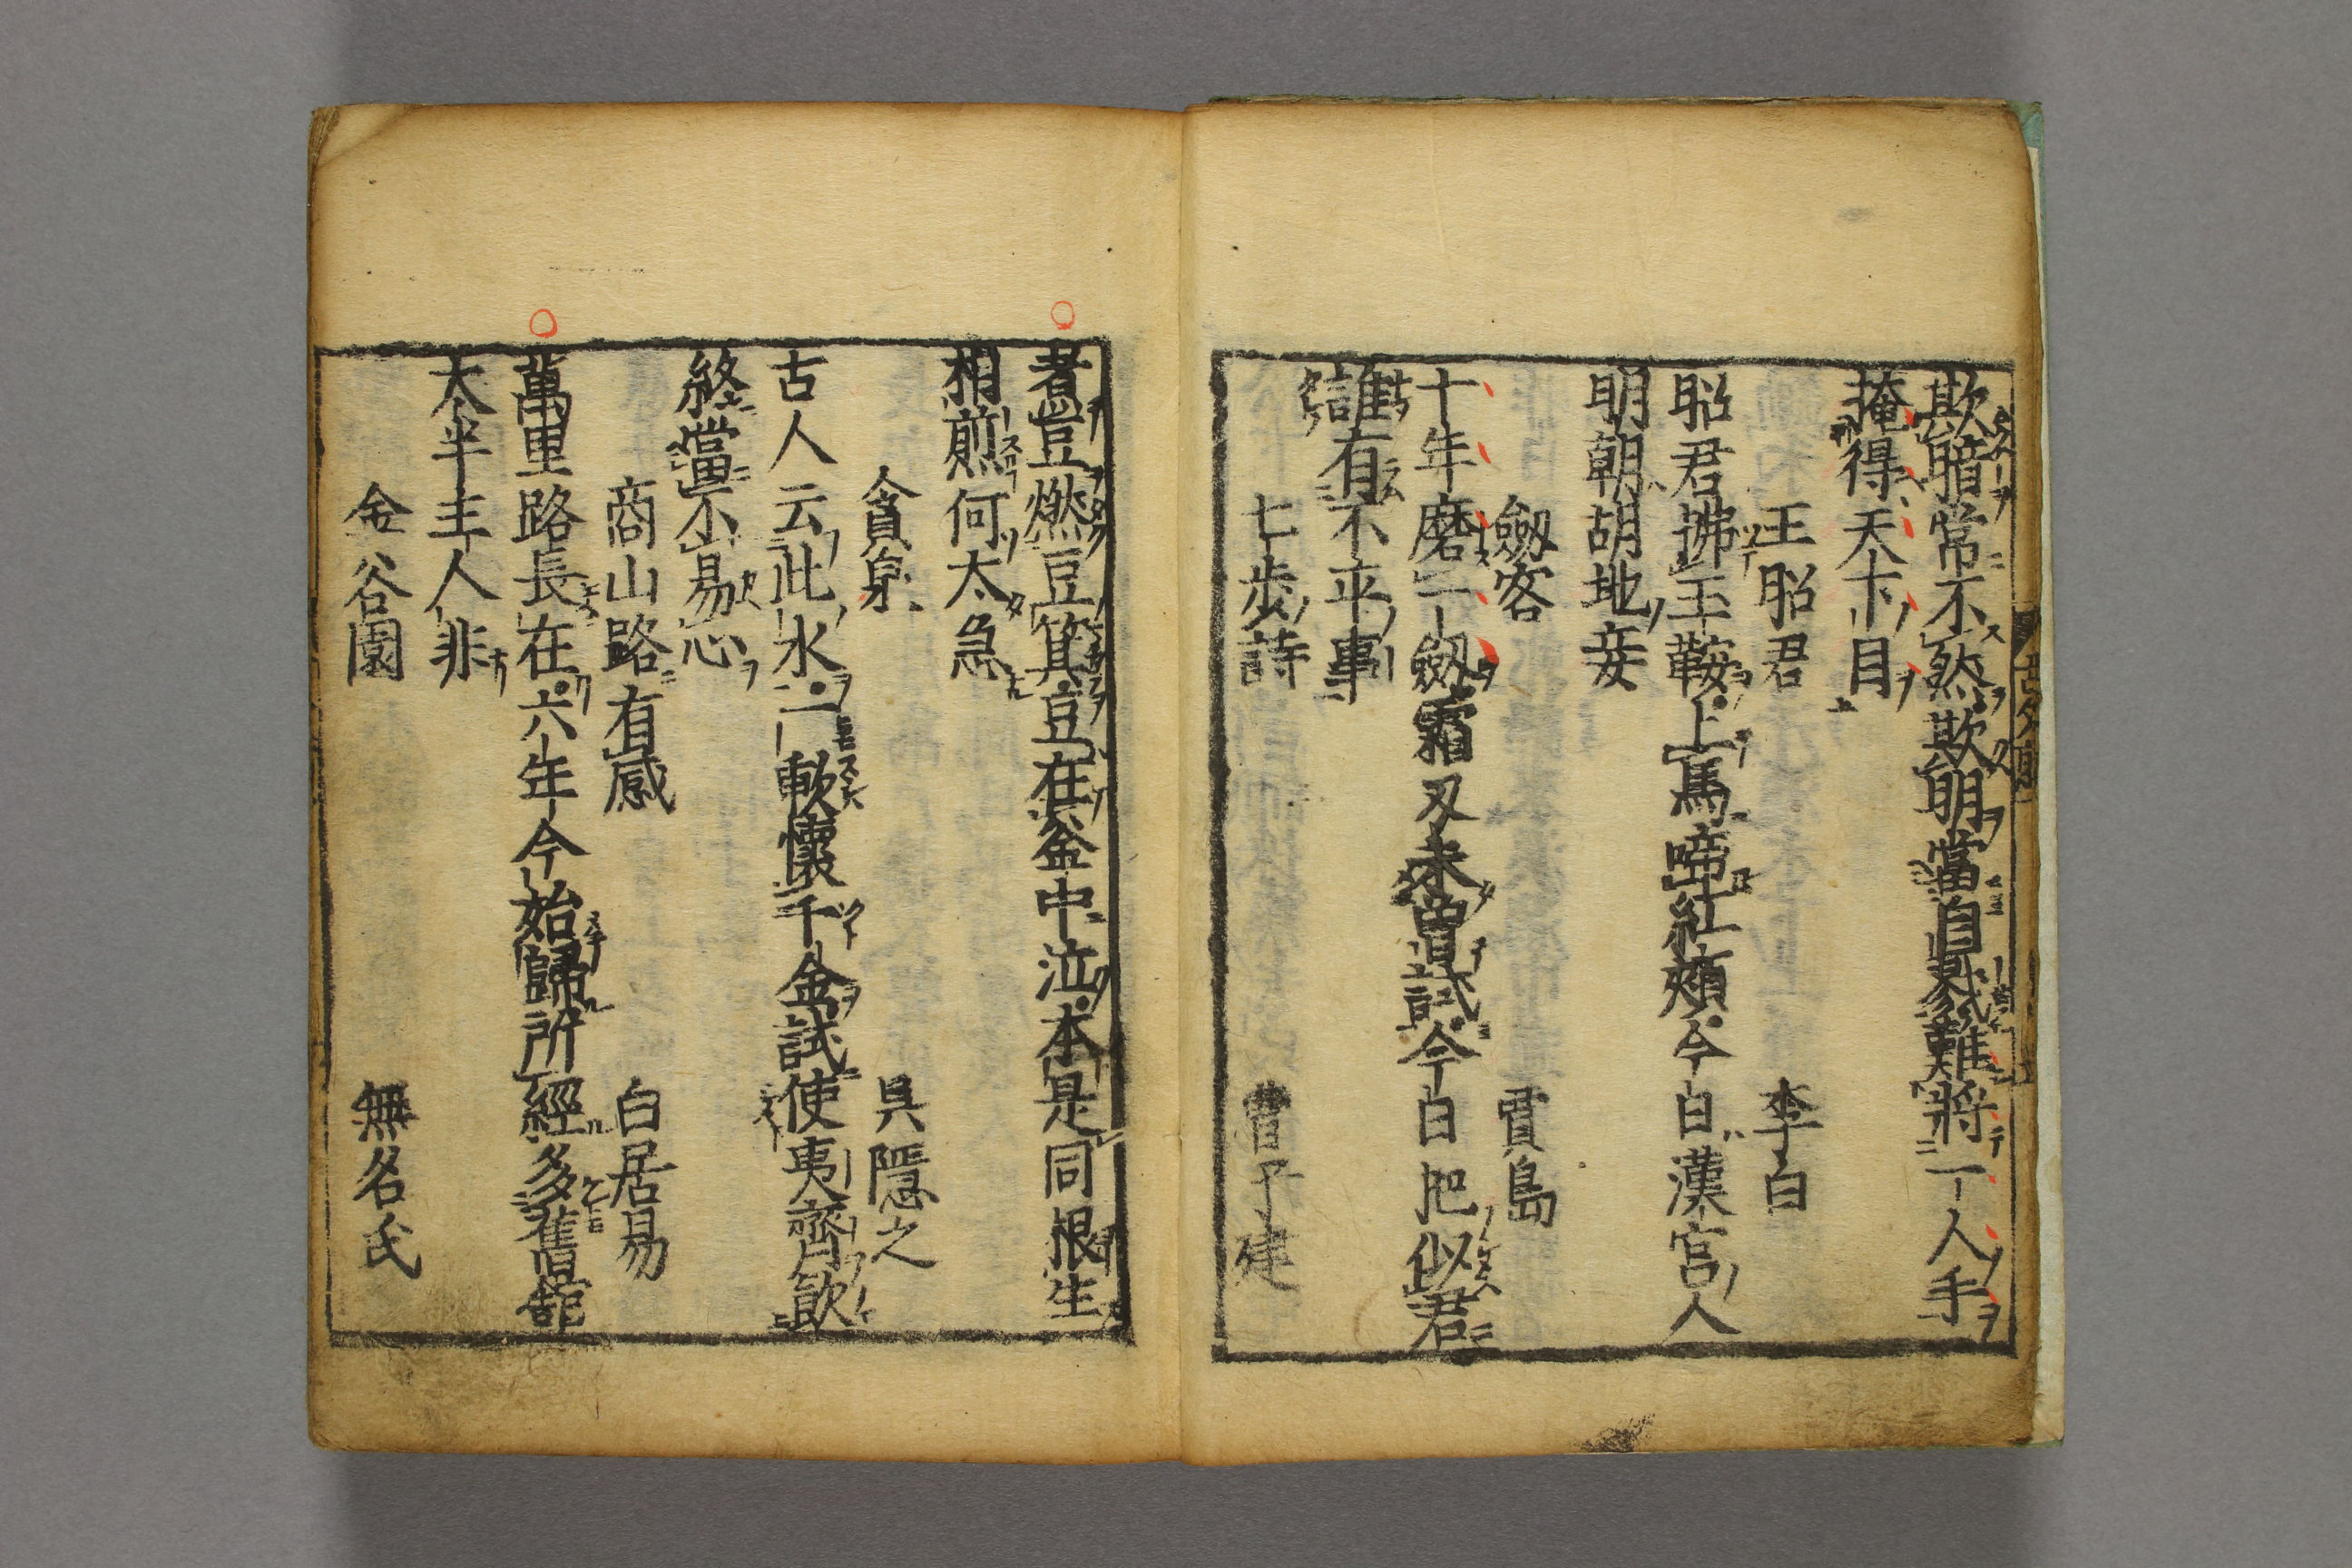 欺暗常不然欺明當自戮難將一人手
掩得天下目
王昭君 李白
昭君拂玉鞍上馬啼紅頰今日漢宮人
明朝胡地妾
劔客 賈島
十年磨一劔霜刃未曾試今日把似君
誰有不平事
七步詩 曹子建
煮豆燃豆箕豆在釜中泣本是同根生
相煎何太急
貪泉 吳隱之
古人云此水一歃懷千金試使夷齊飲
終當不易心
商山路有感 白居易
萬里路長在六年今始歸所經多舊舘
太半主人非
金谷園 無名氏